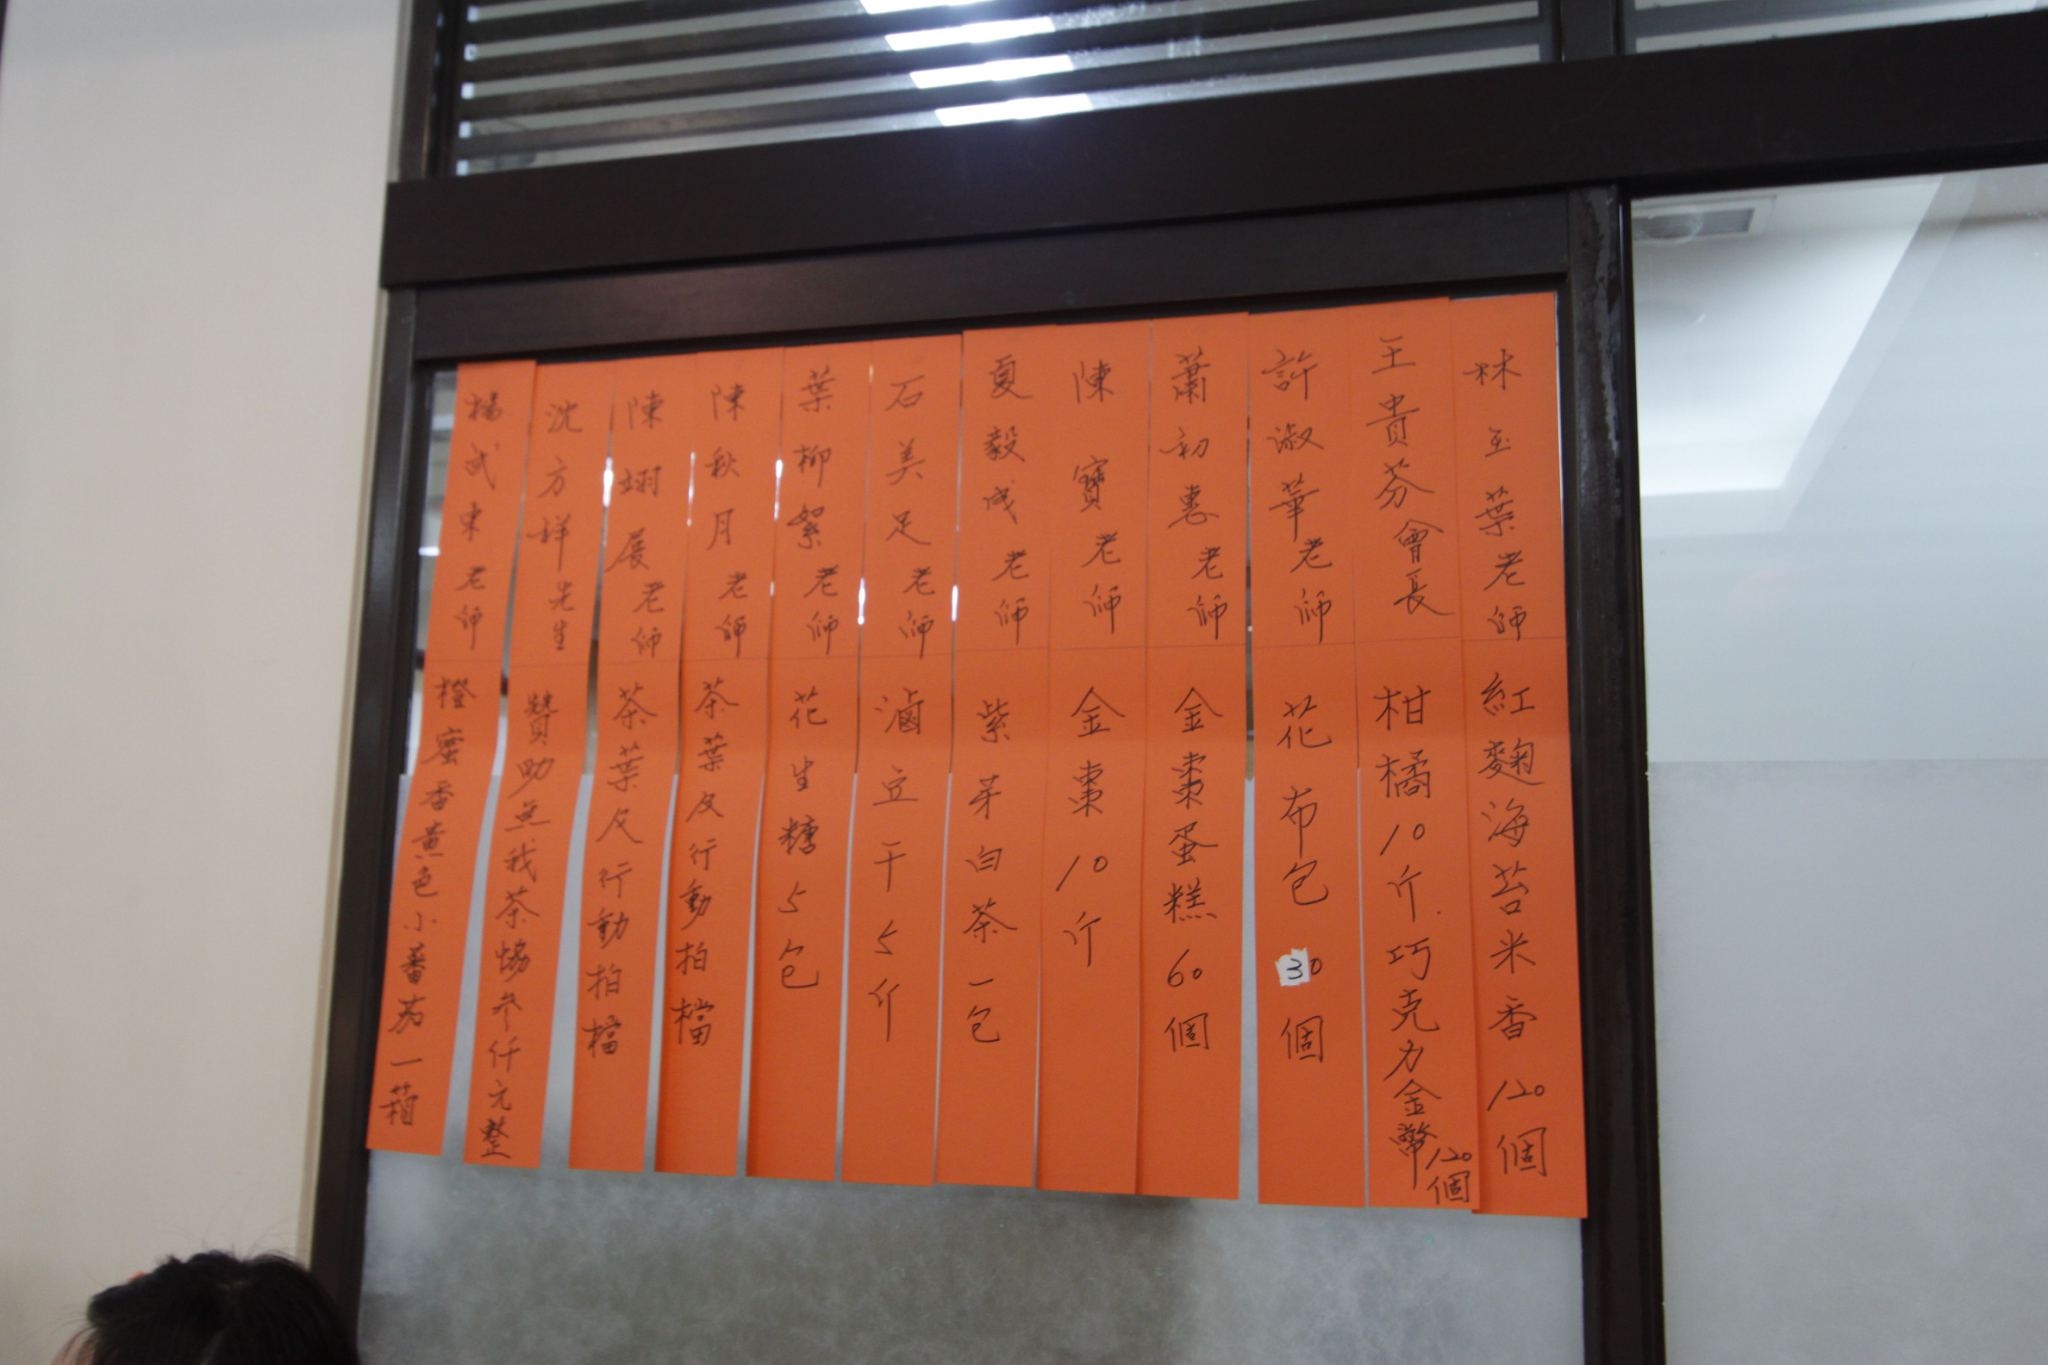 林玉葉老師 紅麴海苔米香 120個
王貴芬會長 柑橘10斤.巧克力金幣120個
許淑華老師 花布包 30個
蕭初惠老師 金棗蛋糕60個
陳寶老師 金棗10斤
夏毅成老師 紫芽白茶一包
石美足老師 滷豆干5斤
葉柳絮老師 花生糖5包
陳秋月老師 茶葉及行動拍檔
陳翊展老師 茶葉及行動拍檔
沈方祥先生 贊助無我茶協參仟元整
楊武東老師 橙蜜香黃色小蕃茄一箱